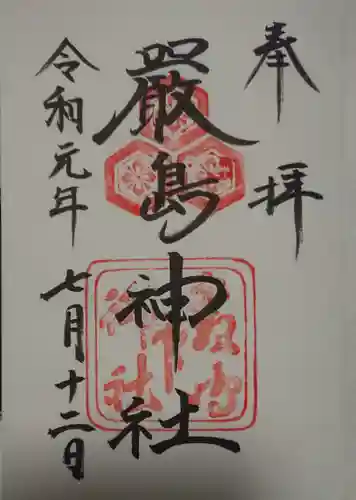 奉拝
嚴島神社
令和元年
七月十二日